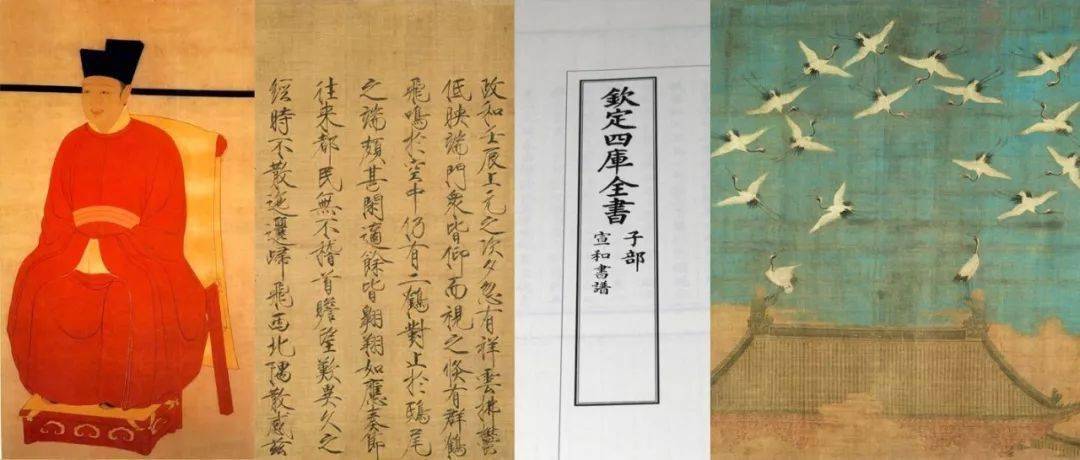 政和壬辰上元之次夕忽有祥雲拂鬱
低映端門衆皆仰而視之倏有群鶴
飛鳴於空中仍有二鶴對止於鴟尾
之端頗甚閑適餘皆翱翔如應奏節
往来都民無不稽首瞻望歎異久之
經時不散迤邐歸飛西北隅散感兹
欽定四庫全書
子部
宣和書譜